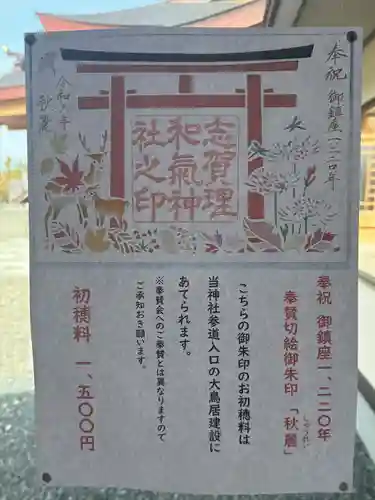 奉祝 御鎮座一二二〇年
志賀理
和氣神
社之印
令和 年
秋麗
奉祝 御鎮座一、二二〇年
奉賛切絵御朱印「秋麗」
しゅうれい
こちらの御朱印のお初穂料は
当神社参道入口の大鳥居建設に
あてられます。
※奉賛会へのご奉賛とは異なりますので
ご承知おき願います。
初穂料 一、五〇〇円